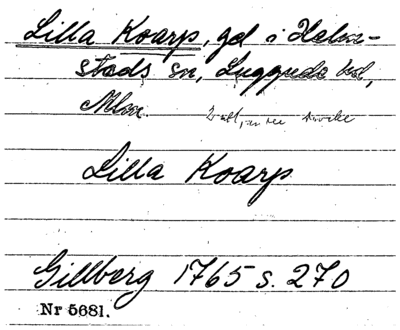 Lilla Koarp, gd i Halm-
stads sn, Luggude hd,
Mlm.
Lilla Koarp
Gillberg 1765 s. 270
Nr 5681.